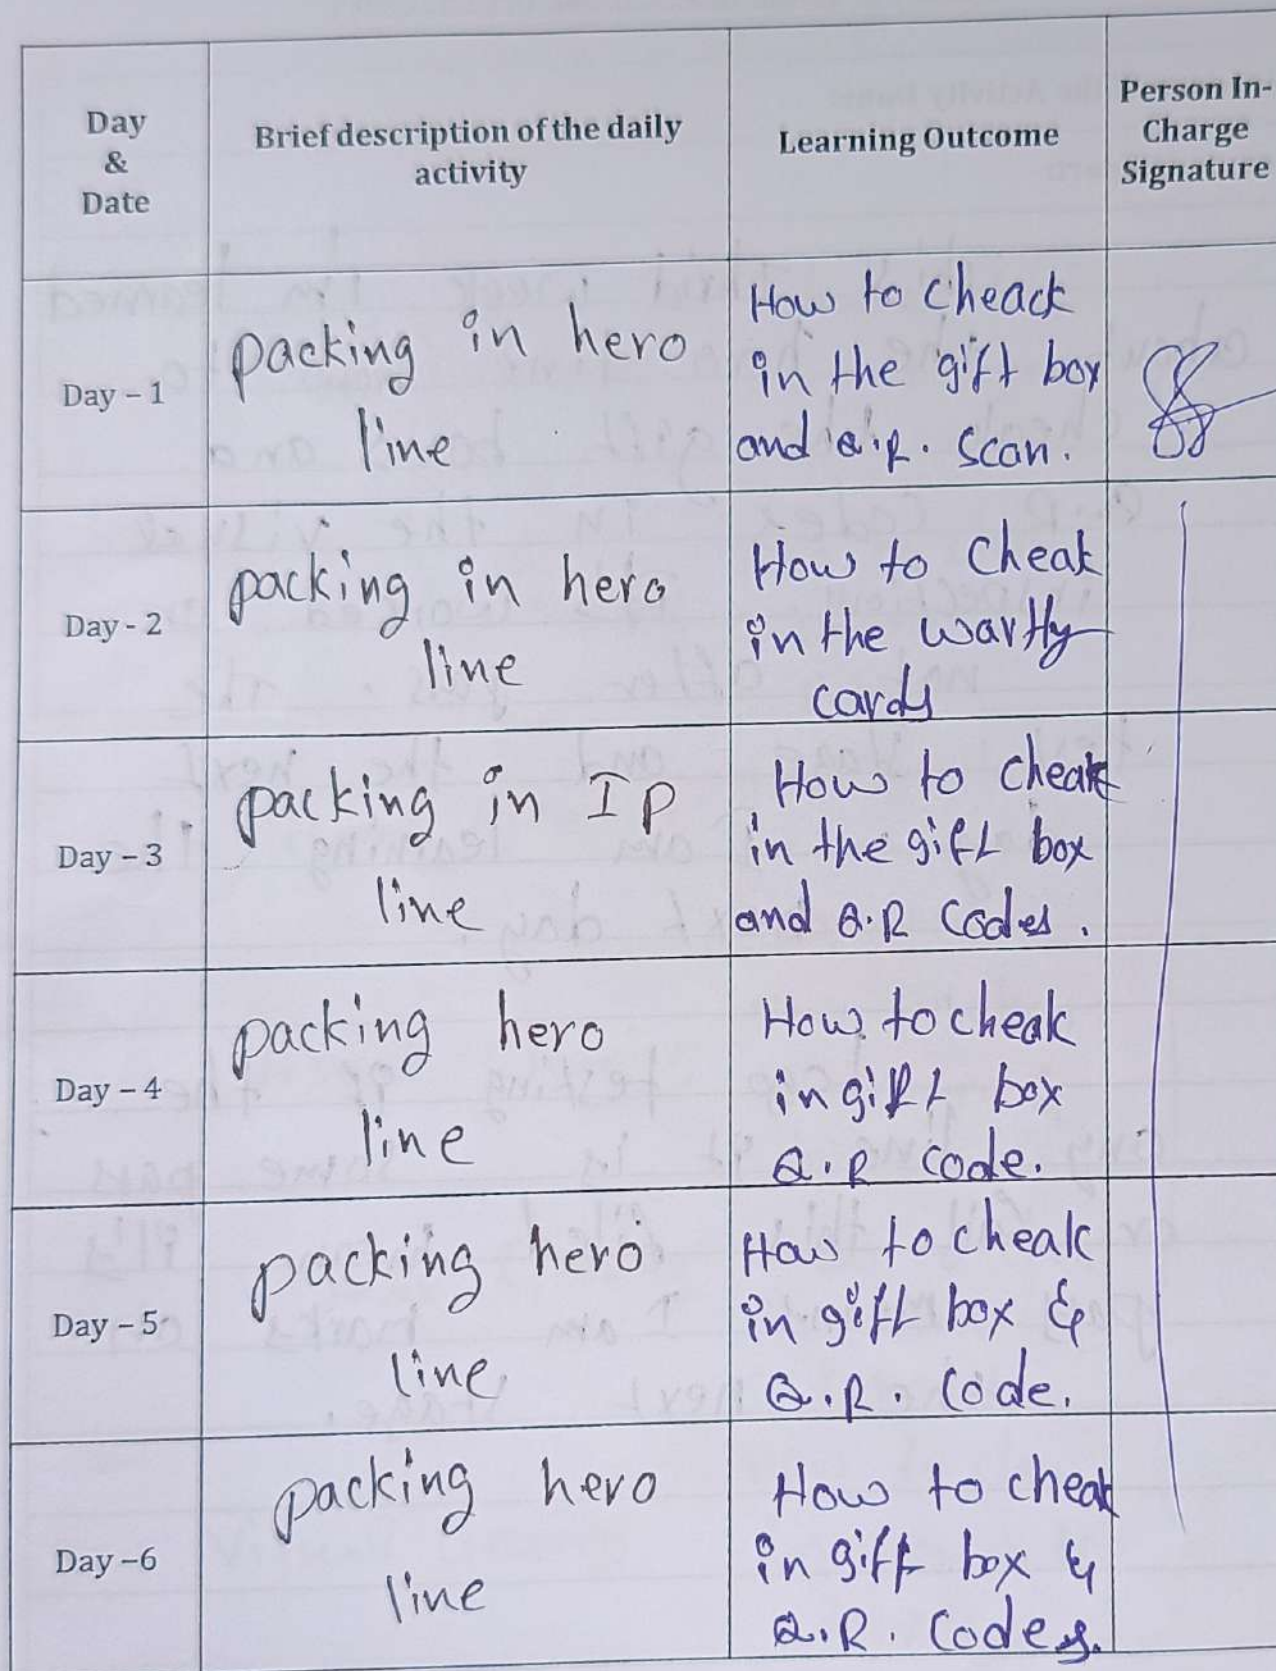 Day
&
Date
Brief description of the daily
activity
Learning Outcome
Person In-
Charge
Signature
Day - 1
packing in hero
line
How to cheack
in the gift box
and Q.R. Scan.
Day - 2
packing in hero
line
How to Cheak
in the wartly
cards
Day - 3
packing in IP
line
How to cheak
in the gift box
and Q.R Codes.
Day - 4
packing hero
line
How to cheak
in gift box
Q.R code.
Day - 5
packing hero
line
How to cheak
in gift box &
Q.R. Code.
Day -6
packing hero
line
How to cheak
in gift box &
Q.R. Codes.